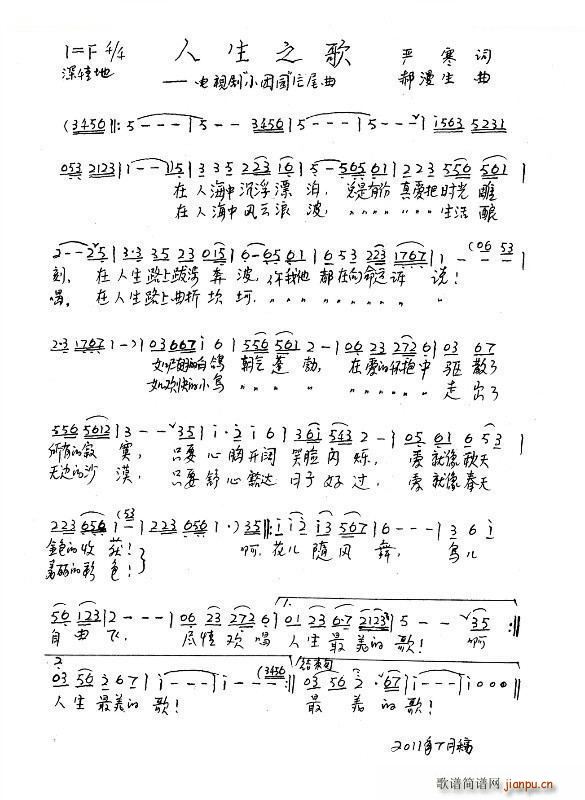 1=F 4/4 人生之歌 严寒 词
深情地 ——电视剧"小团圆"片尾曲 郝漫生 曲
(3456‖: 5---|5-- 3456|5---|5---)|i563 5231
053 2123|1---|1--)5|335 223 16|5-565 61|223 556 561|
在人海中沉浮漂泊, 总是有份真爱把时光雕
在人海中风云浪波, 〃〃〃〃〃〃生活酿
2--25|3·3 35 23 015|6-65 61|653 223 1767|1-(06 53
刻, 在人生路上跋涉奔波, 你我他都在向命运诉说!
唱, 在人生路上曲折坎坷, 〃〃〃〃〃〃〃〃
2·3 1767|1--)|03 667 i 6|556 561 2-|06 23 2726|03 67
的白鸽 朝气蓬勃, 在爱的怀抱中 驱散了
如欢快的小鸟 〃〃〃〃 〃〃〃〃〃〃 走出了
556 5612|3--35|i·2 i6|36i 543 2-|05 61 6 53|
所有的寂寞, 只要心胸开阔笑脸闪烁, 爱就像秋天
无边的沙漠, 只要舒心豁达日子好过, 爱就像春天
223 656 1-(53|223 656 1·)35:‖i i2 i3 567|6---|3 6 i
金色的收获! 啊,花儿随风舞, 鸟儿
美丽的彩色!
56 123|2---|06 23 272 6|01 23 6·7 2123|5--35:‖
自由飞, 尽情欢唱 人生最美的歌! 啊
2. 03 56 2 67|i---|i---(3456:‖ 结束句 03 56 2·67|i---|i000‖
人生最美的歌! 最美的歌!
2011年 月稿
歌谱简谱网
jianpu.cn